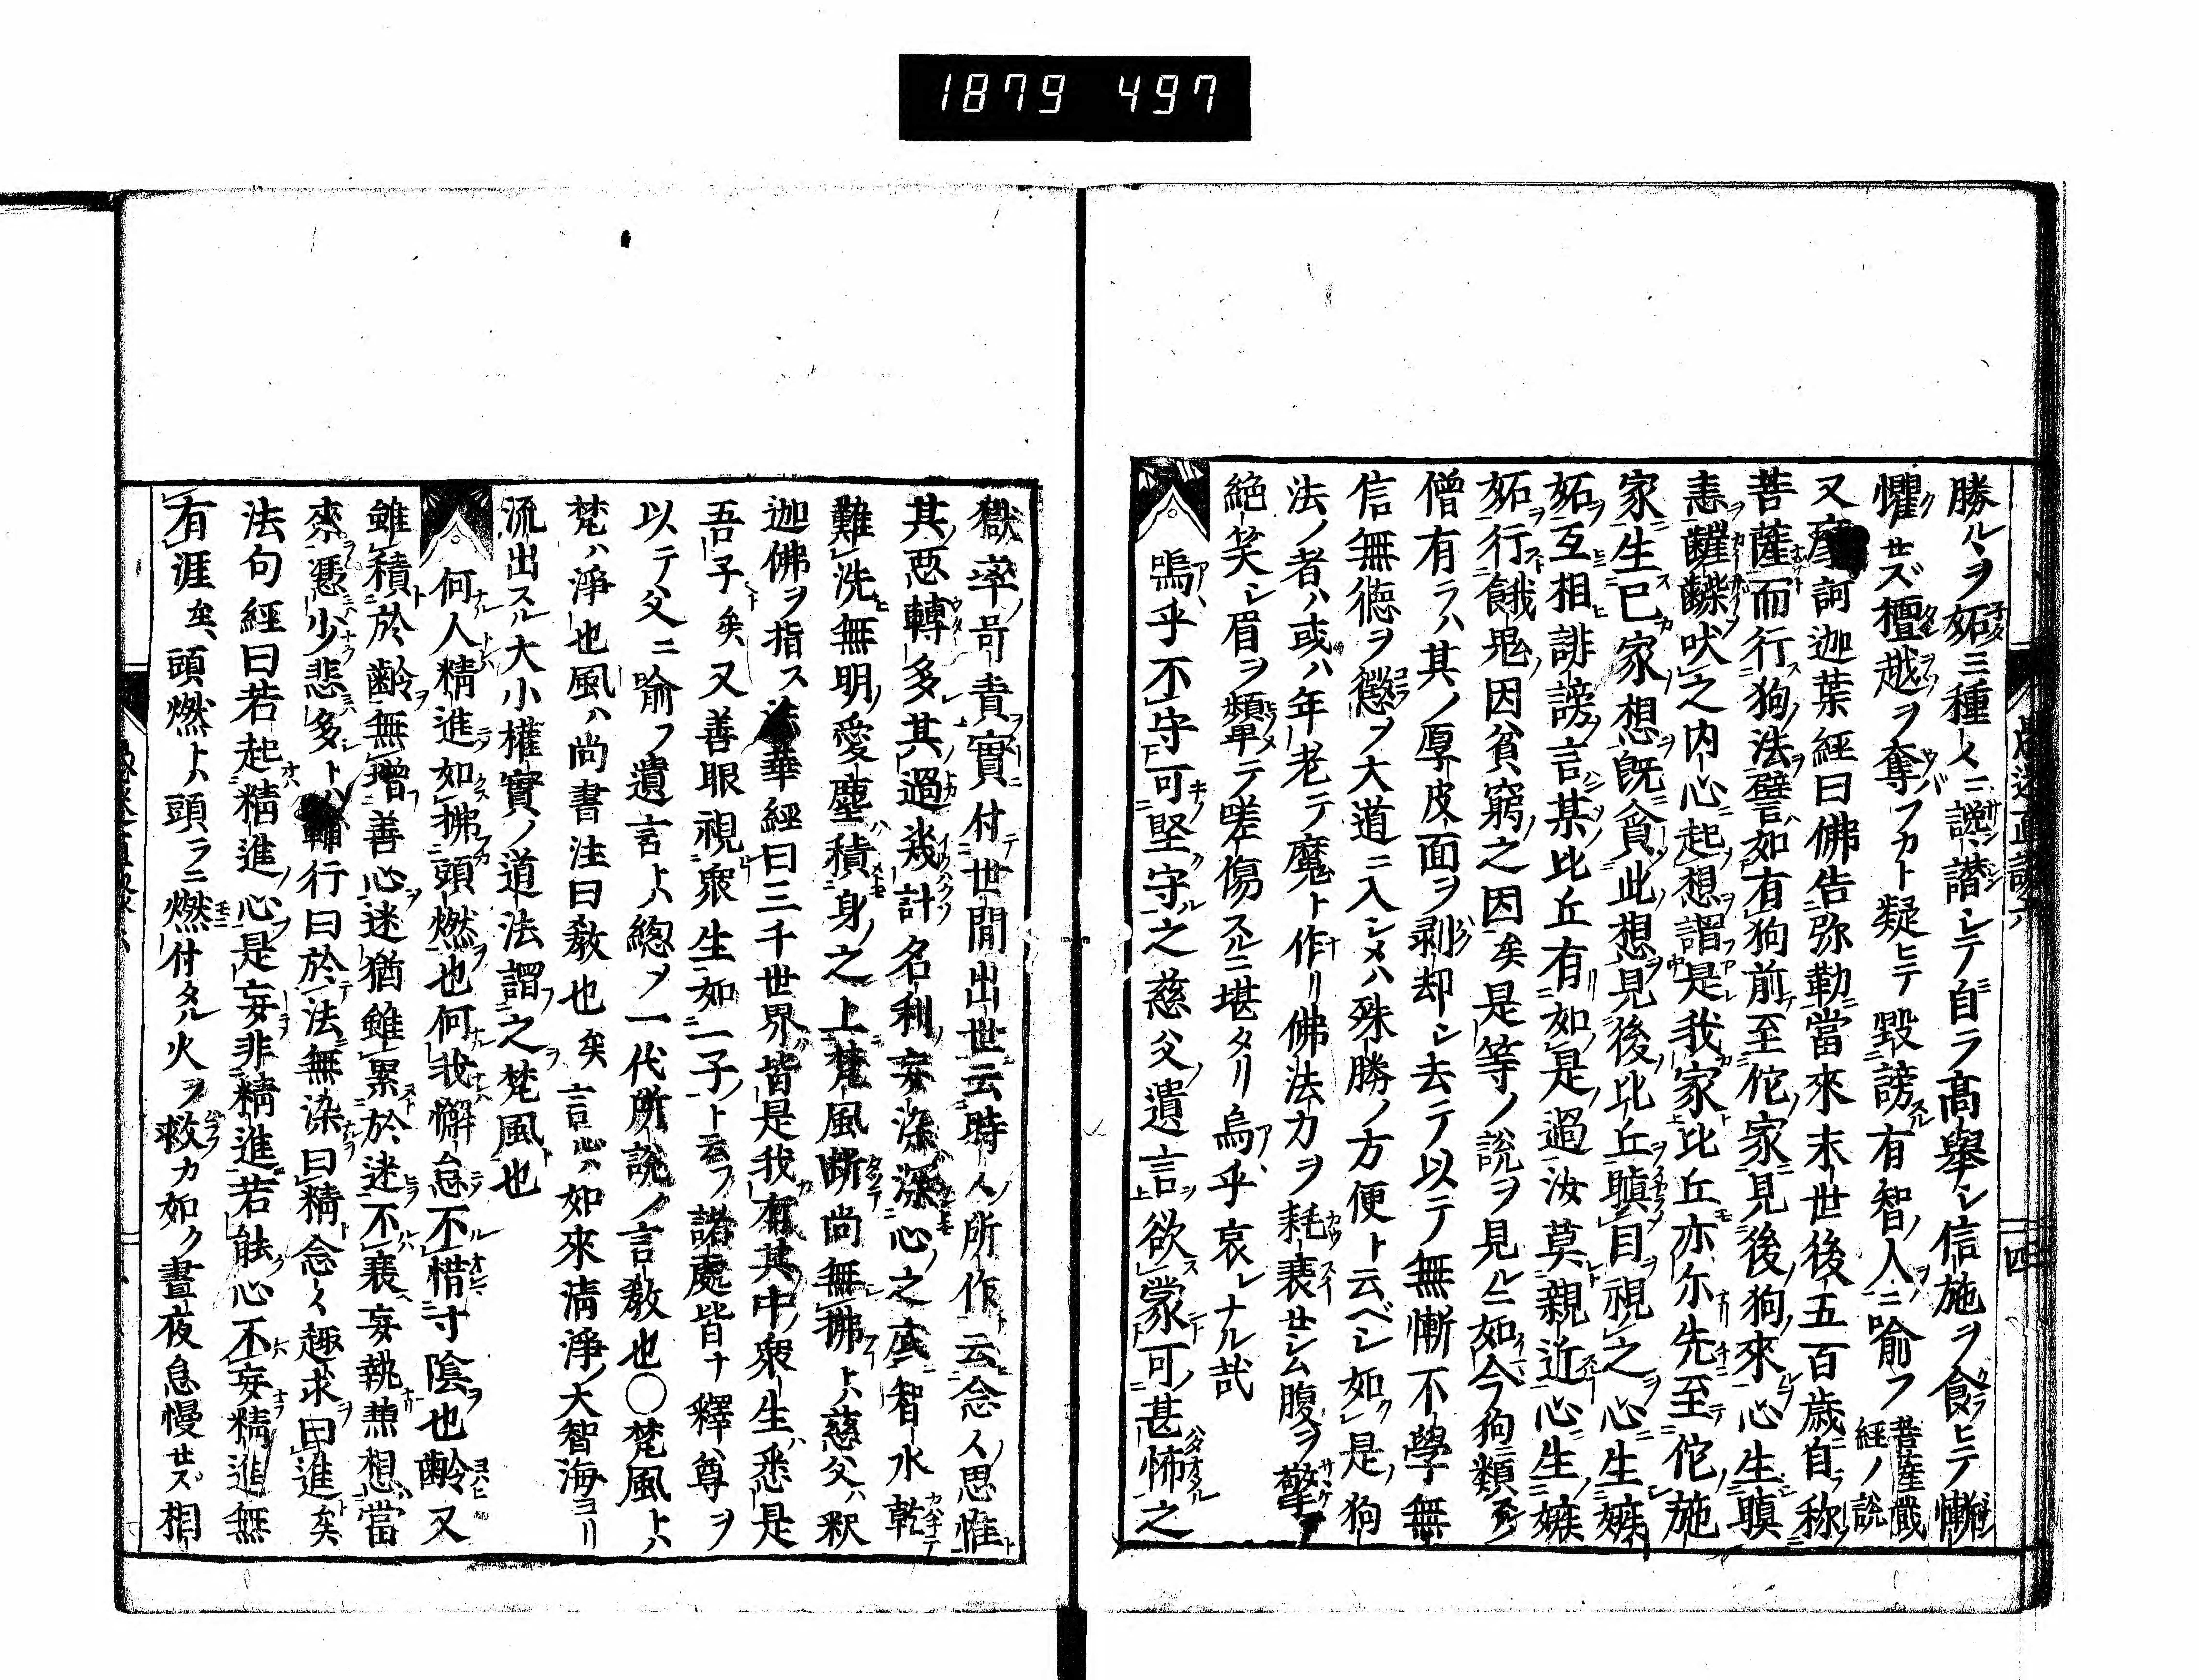 1879 497
勝ルヲ妬ミ種〻ニ説譛シテ自ラ髙擧シ信施ヲ飡ヒテ慚
懼セズ檀越ヲ奪フカト疑ヒテ毀謗有智人ニ喩フ菩薩藏經ノ説
又摩訶迦葉經曰佛告弥勒當來末世後五百歳自称
菩薩而行狗法譬如有狗前至佗家見後狗來心生瞋
恚齜齪吠之内心起想謂是我家比丘亦尓先至佗施
家生已家想既貪此想見後比丘瞋目視之心生嫉
妬互相誹謗言某比丘有如是過汝莫親近心生嫉
妬行餓鬼因貧窮之因矣是等ノ説ヲ見ルニ如今狗類
僧有ラハ其ノ厚皮面ヲ剥却シ去テ以テ無慚不學無
信無德ヲ懲ヲ大道ニ入シメハ殊勝ノ方便ト云ベシ如是狗
法ノ者ハ或ハ年老テ魔ト作リ佛法カヲ耗衰セシム腹ヲ擎
絶笑シ眉ヲ顰テ嗟傷スルニ堪タリ烏乎哀シナル哉
嗚乎不守可堅守之慈父遺言欲蒙可甚怖之
獄率呵責實付世間出世云時人所作云念人思惟
其惡轉多其過幾計名利妄染深心之底智水乾
難洗無明愛塵積身之上梵風断尚無拂トハ慈父ハ釈
迦佛ヲ指ス法華經曰三千世界皆是我有其中衆生悉是
吾子矣又善眼視衆生如一子ト云フ諸處皆ナ釋尊ヲ
以テ父ニ喩フ遺言トハ總ノ一代所説ノ言教也〇梵風トハ
梵ハ淨也風ハ尚書注曰教也矣言心ハ如來清淨大智海ヨリ
流出スル大小權實ノ道法謂之梵風也
何人精進如拂頭燃也何我懈怠不惜寸陰也齡又
雖積於齡無增善心迷猶雖累於迷不衰妄執䔍想當
來憑少悲多トハ輔行曰於法無染曰精念〻趣求曰進矣
法句經曰若起精進心是妄非精進若能心不妄精進無
有涯矣頭燃トハ頭ラニ燃付タル火ヲ救カ如ク晝夜怠慢セズ相
四